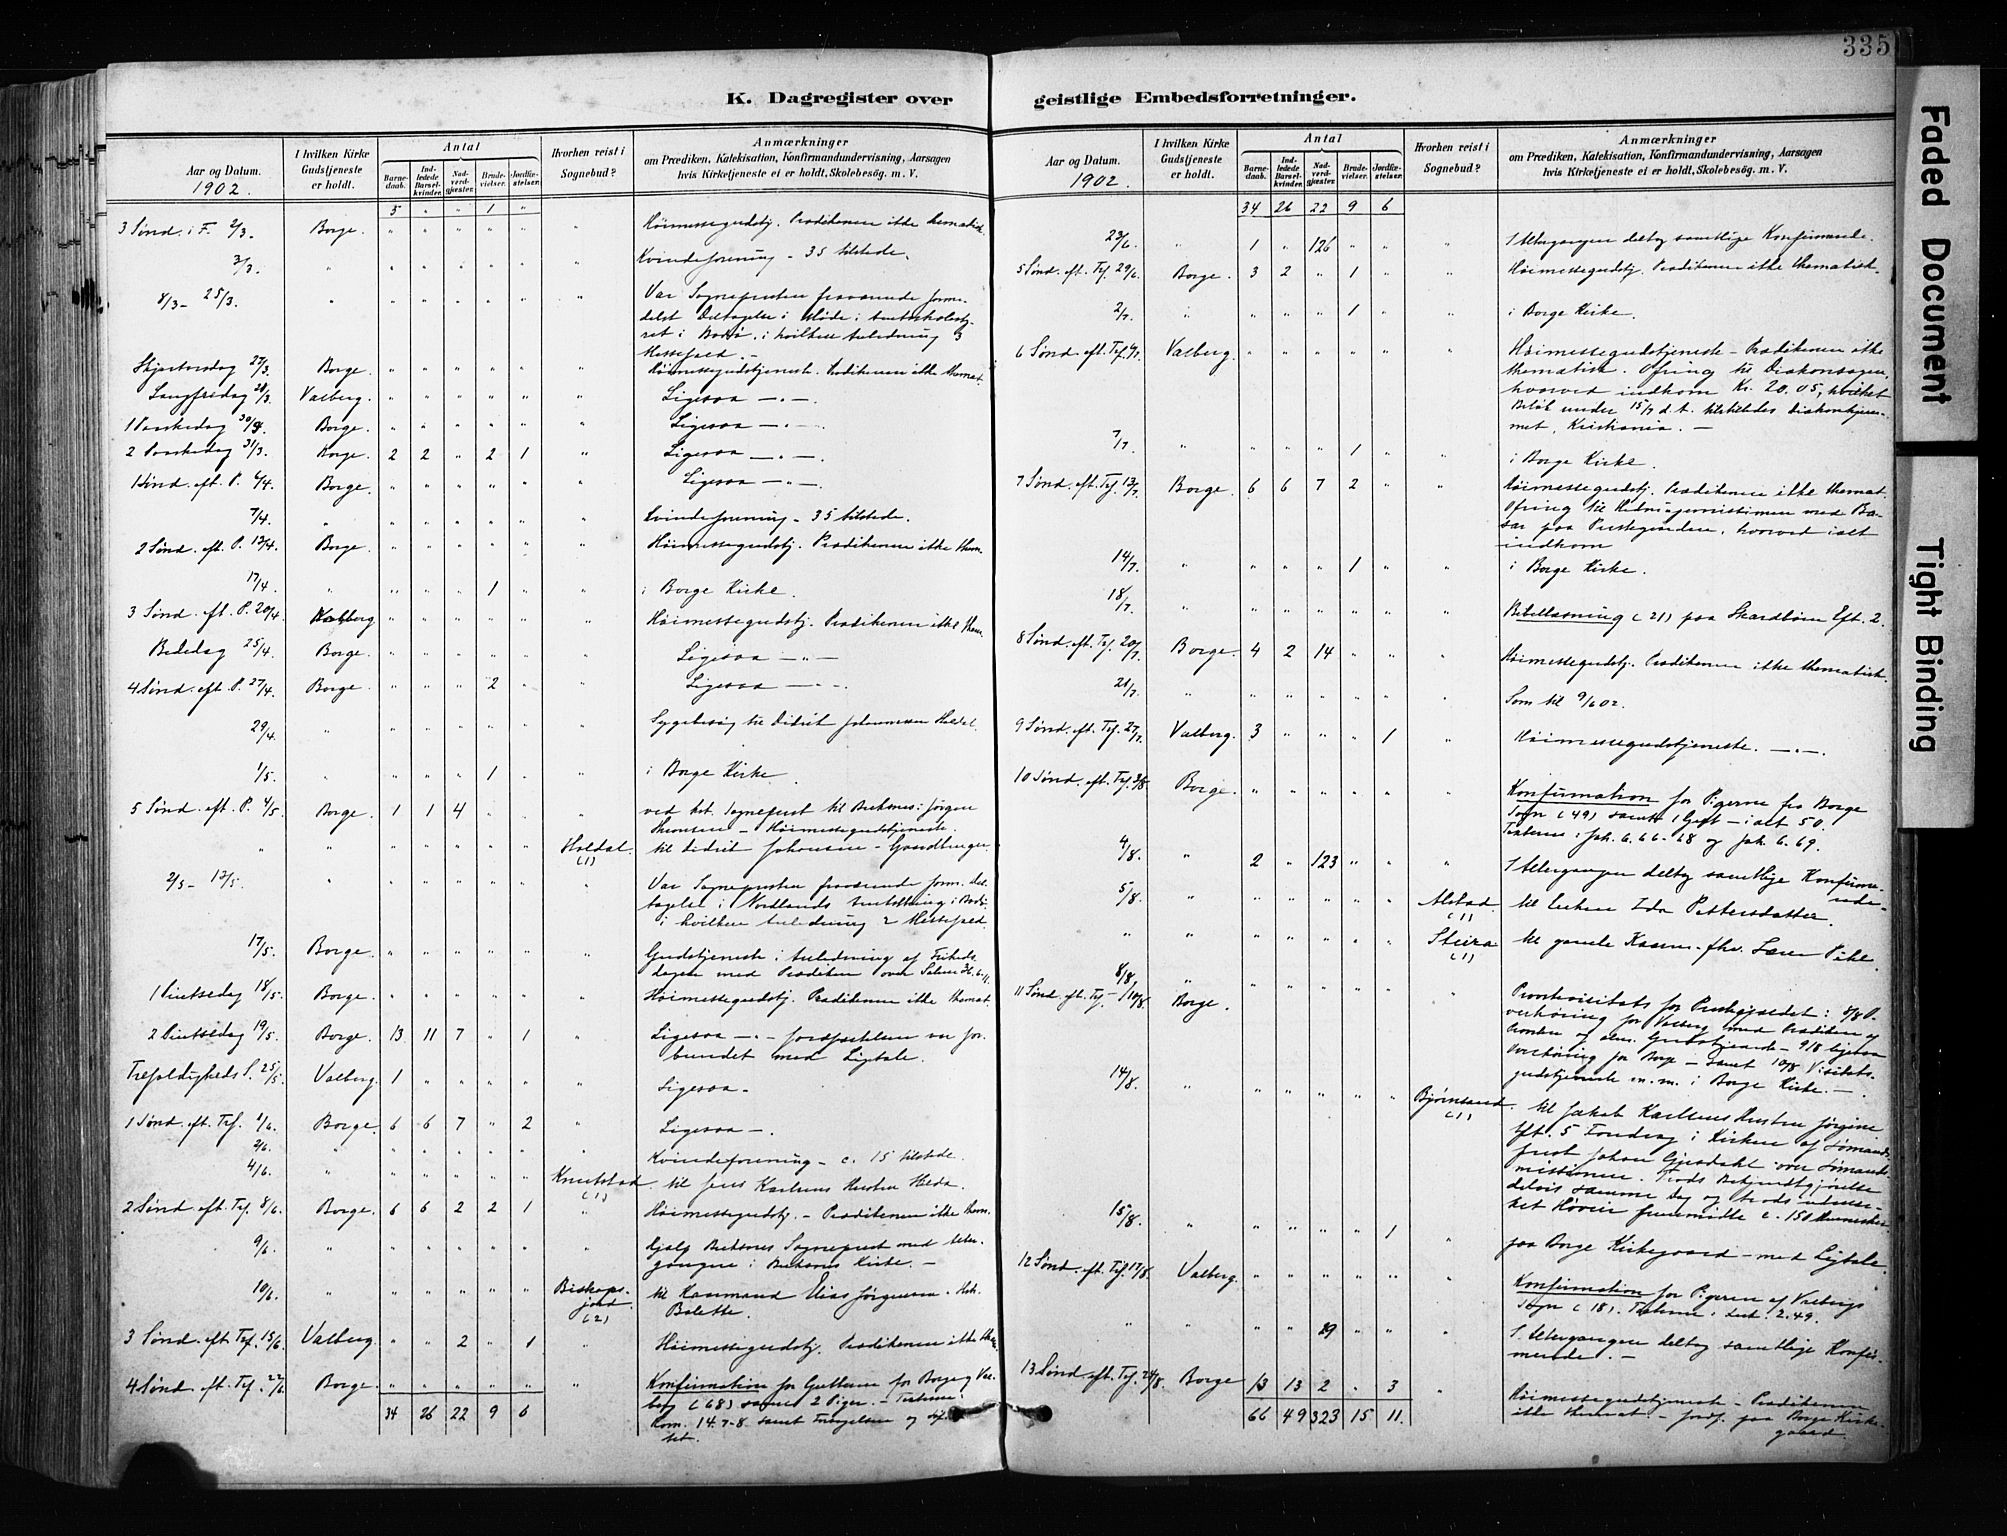 335
K. Dagregister over geistlige Embedsforretninger.
Faded Document
Tight Binding
Aar og Datum.
1902.
I hvilken Kirke Gudstjeneste er holdt.
Antal
Barnedaab.
Indledede Barselkvinder.
Nadverdgjæster.
Brudevielser.
Jordfæstelser.
Hvorhen reist i Sognebud?
Anmærkninger
om Prædiken, Katekisation, Konfirmandundervisning, Aarsagen
hvis Kirketjeneste ei er holdt, Skolebesøg. m. V.
5 " " 1 "
3 Sønd. i F. 2/3. Borge. " " " " " " Høimessegudstj. Prædikenen ikke thematisk.
3/3. " " " " " " " Kvindeforening - 35 tilstede.
8/3 - 25/3. " " " " " " " Var Sognepresten fraværende forme-
delst Deltagelse i Møde i Amtsskolesty-
ret i Bodø, i hvilken Anledning 3
Messefald. -
Skjærtorsdag 27/3. Borge. " " " " " " Høimessegudstjeneste. Prædikenen ikke themat.
Langfredag 28/3. Valberg. " " " " " " Ligesaa - " -.
1 Paaskedag 30/3. Borge. " " " " " " Ligesaa - " -.
2 Paaskedag 31/3. Borge. 2 2 " 2 1 " Ligesaa - " -.
1 Sønd. eft. P. 6/4. Borge. " " " " " " Ligesaa - " -.
7/4. " " " " " " " Kvindeforening - 35 tilstede.
2 Sønd. eft. P. 13/4. Borge. " " " " " " Høimessegudstj. Prædikenen ikke them.
17/4. " " " " 1 " " i Borge Kirke.
3 Sønd. eft. P. 20/4. Valberg " " " " " " Høimessegudstj. Prædikenen ikke them.
Bededag 25/4. Borge. " " " " " " Ligesaa - " -
4 Sønd. eft. P. 27/4. Borge. " " " 2 " " Ligesaa - " -.
29/4. " " " " " " " Sygebesøg til Didrik Johannesen Holdal.
1/5. " " " " 1 " " i Borge Kirke.
5 Sønd. eft. P. 4/5. Borge. 1 1 4 " " " ved kst. Sogneprest til Buksnes: Jørgen
Thomsen - Høimessegudstjeneste.
" " " " " " " Holdal. (1) til Didrik Johansen - Gaardbruger.
2/5 - 12/5. " " " " " " " Var Sognepresten fraværende form. Del-
tagelse i Nordlands Amtsthing i Bodø,
i hvilken Anledning 2 Messefald.
17/5. Borge. " " " " " " Gudstjeneste i Anledning af Friheds-
dagen med Prædiken over Salme
1 Pintsedag 18/5. Borge. " " " " " " Høimessegudstj. Prædikenen ikke themat.
2 Pintsedag 19/5. Borge. 13 11 7 " 1 " Ligesaa - " - Jordfæstelsen var for-
bundet med Ligtale.
Trefoldigheds S. 25/5. Valberg. 1 " " " " " Ligesaa -
1 Sønd. eft. Tref. 1/6. Borge. 6 6 7 " 2 Ligesaa -.
2/6. " " " " " " " Kvindeforening - c. 15 tilstede.
4/6. " " " " " " Knutstad (1) til Jens Karlsens Hustru Helda.
2 Sønd. eft. Tref. 8/6. Borge. 6 6 2 2 1 " Høimessegudstj. - Prædikenen ikke them.
9/6. " " " " " " " hjalp Buksnes Sogneprest med Alter-
gangen i Buksnes Kirke. -
10/6. " " " " " " Biskops-
jord (2) til Kaarmand Elias Jørgensen. Hst.
Balette.
3 Sønd. eft. Tref. 15/6. Valberg. " " 2 " 1 " Høimessegudstj. Prædikenen ikke them.
4 Sønd. eft. Tref. 22/6. Borge. " " " " " " Konfirmation for Gutterne for Borge og Val-
berg (68) samt 2 Piger. - Texterne:
Rom. 14.7-8. samt
34 26 22 9 6
Aar og Datum.
1902.
I hvilken Kirke Gudstjeneste er holdt.
Antal
Barnedaab.
Indledede Barselkvinder.
Nadverdgjæster.
Brudevielser.
Jordfæstelser.
Hvorhen reist i Sognebud?
Anmærkninger
om Prædiken, Katekisation, Konfirmandundervisning, Aarsagen
hvis Kirketjeneste ei er holdt, Skolebesøg. m. V.
34 26 22 9 6
23/6. " 1 " 126 " " " I Altergangen deltog samtlige Konfirmande.
5 Sønd. eft. Tref. 29/6. Borge. 3 2 " 1 " " Høimessegudstj. Prædikenen ikke thematisk.
2/7. " " " " 1 " " i Borge Kirke.
6 Sønd. eft. Tref. 6/7. Valberg. " " " " " " Høimessegudstjeneste - Prædikenen ikke
thematisk. Ofring til Diakonsagen,
hvorved indkom Kr. 20.05, hvilket
Beløb under 15/7 d. A. tilstilledes Diakonhjem-
met, Kristiania. -
7/7. " " " " 1 " " i Borge Kirke.
7 Sønd. eft. Tref. 13/7. Borge. 6 6 7 2 " " Høimessegudstj. Prædikenen ikke themat.
Ofring til Hedningemissionen med Ba-
sar paa Prestegaarden, hvorved ialt
indkom
14/7. " " " " 1 " " i Borge Kirke.
18/7. " " " " " " " Bibellæsning (21) paa Skardbøen Eft. 2.
8 Sønd. eft. Tref. 20/7. Borge. 4 2 14 " " " Høimessegudstj. Prædikenen ikke thematisk.
21/7. " " " " " " " Som til 9/6 02.
9 Sønd. eft. Tref. 27/7. Valberg. 3 " " " 1 " Høimessegudstjeneste. - " -.
10 Sønd. eft. Tref. 3/8. Borge. " " " " " " Konfirmation for Pigerne fra Borge
Sogn (49) samt 1 Gut - i alt 50.
Texterne: Joh. 6.66-68 og Joh. 6.69.
4/8. " 2 " 123 " " " I Altergangen deltog samtlige Konfirme-
rede.
5/8. " " " " " " Alstad. (1) til Enken Ida Pettersdatter.
" " " " " " " Steira (1) til gamle Kaarm. fhv. Lærer
8/8. "
11 Sønd. eft. Tref. - 10/8. Borge. " " " " " " Provstevisitats for Prestegjældet: 8/8
Overhøring for Valberg med Prædiken og
Gudstjeneste - 9/8 ligesaa
Overhøring for Borge - samt 10/8 Visitats-
gudstjeneste m. m. i Borge Kirke. -
14/8. " " " " " " Bjørnsand (1) til Jakob Karlsens Hustru Jørgine
Eft. 5 Foredrag i Kirken af Sømands-
prest Johan Gjesdahl over Sømands-
missionen. Trods Bekjendtgjørelse
delvis samme Dag og trods
ket Høveir fremmødte c. 150 Mennesker.
15/8. " " " " " 1 " paa Borge Kirkegaard - med Ligtale.
12 Sønd. eft. Tref. 17/8. Valberg. " " " " " " Konfirmation for Pigerne af Valbergs
Sogn (18). Texterne: Luk. 2.49.
" " " " 19 " " " I Altergangen deltog samtlige Konfir-
merede. -
13 Sønd. eft. Tref. 24/8. Borge 13 13 2 " 3 " Høimessegudstjeneste - Prædikenen
ikke themat. - Jordf. paa Borge Kirke-
gaard.
66 49 323 15 11.